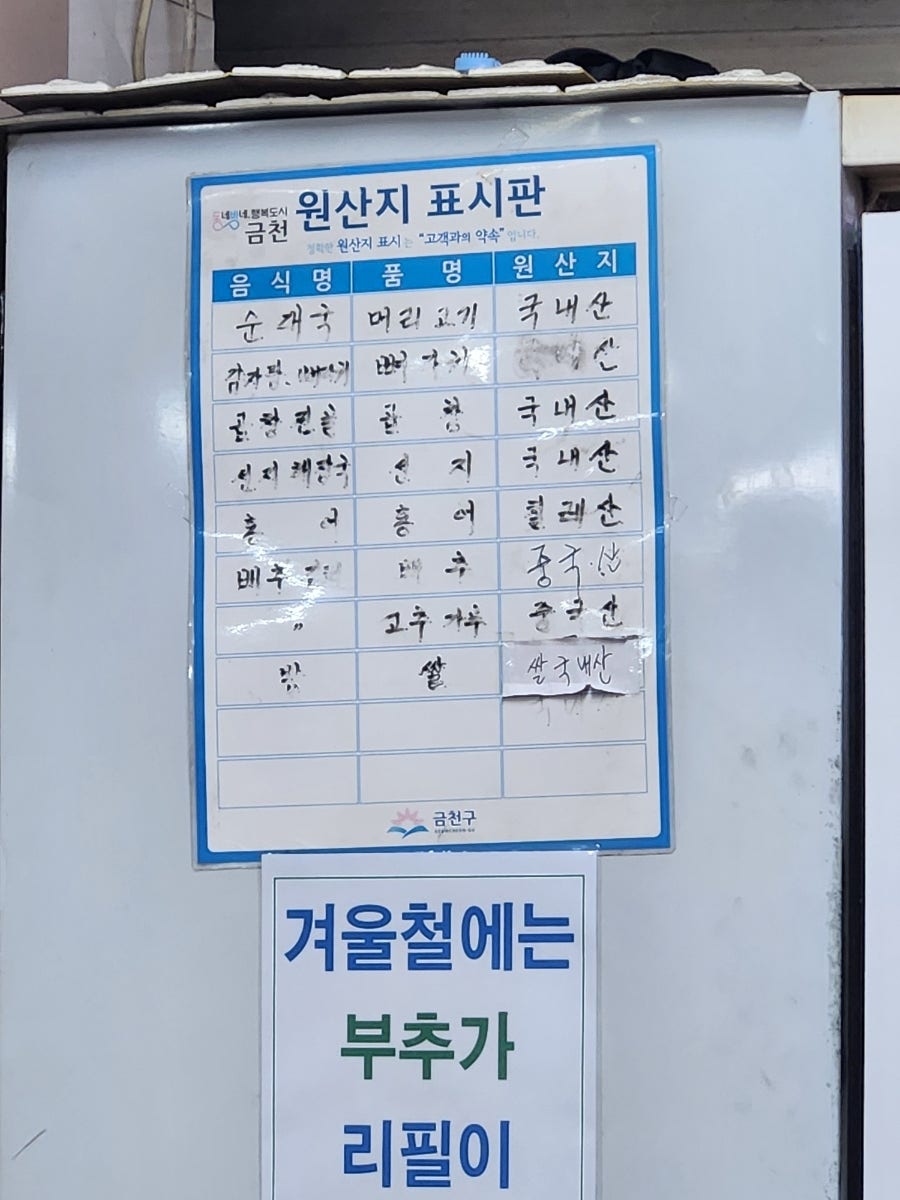 동네방네 행복도시
금천
원산지 표시판
정확한 원산지 표시는 "고객과의 약속"입니다.
음식명 품명 원산지
순대국 머리고기 국내산
감자탕, 뼈 산
곱창전골 곱창 국내산
선지해장국 선지 국내산
홍어 홍어 칠레산
배추 배추 중국산
〃 고추가루 중국산
밥 쌀 쌀국내산
금천구
GEUMCHEON-GU
겨울철에는
부추가
리필이